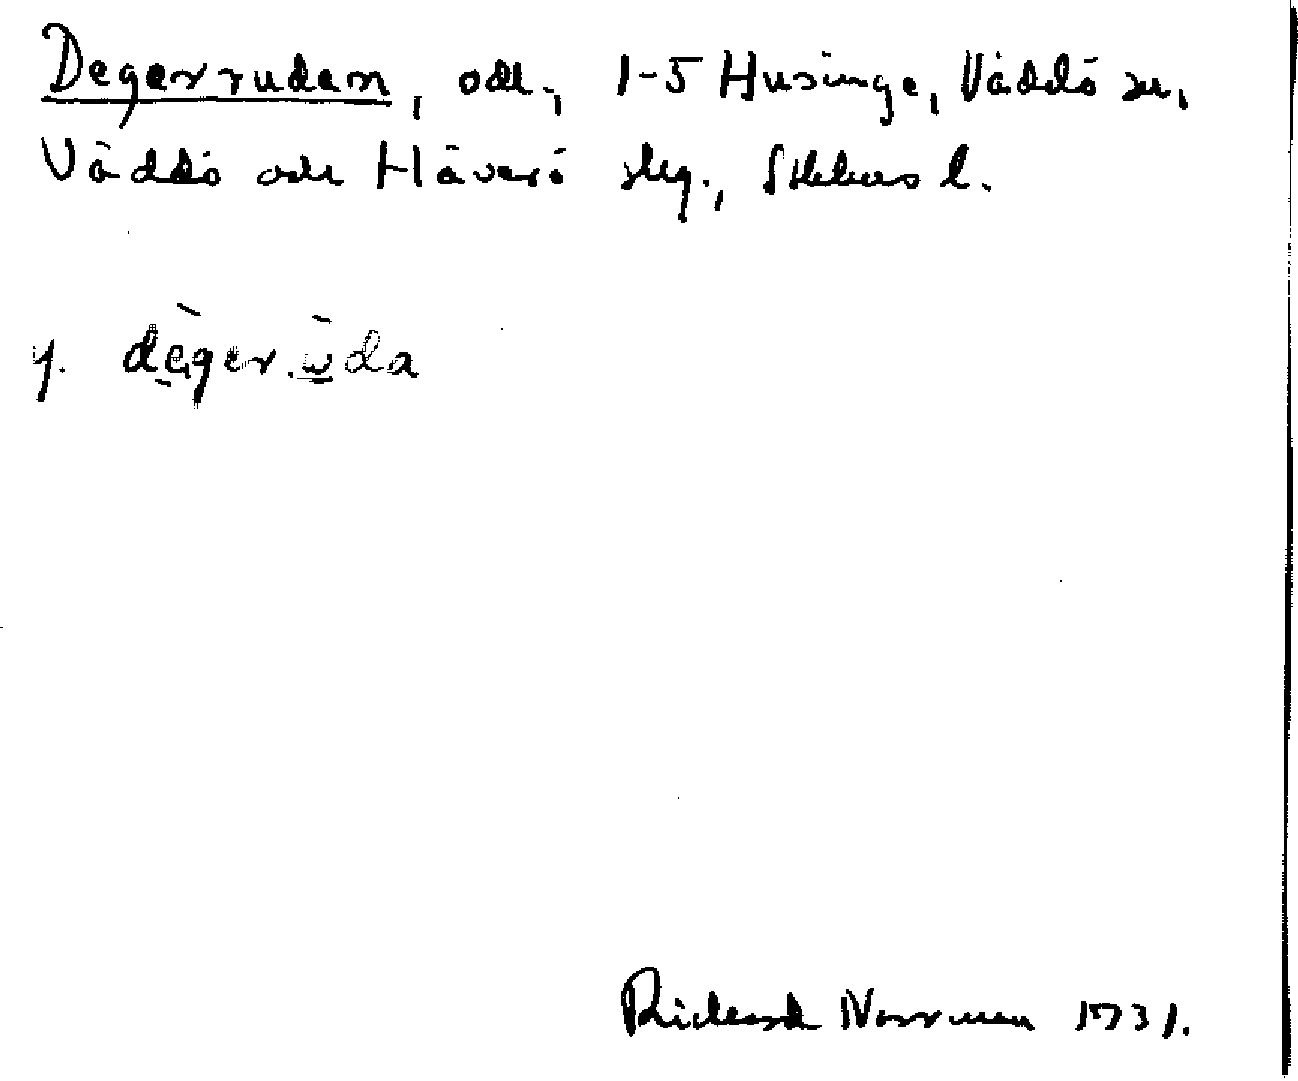 Degerrudan, odl., 1-5 Husinge, Väddö sn,
Väddö och Häverö slg., Sthlms l.
y. dègerùda
Rickard Norrman 1931.